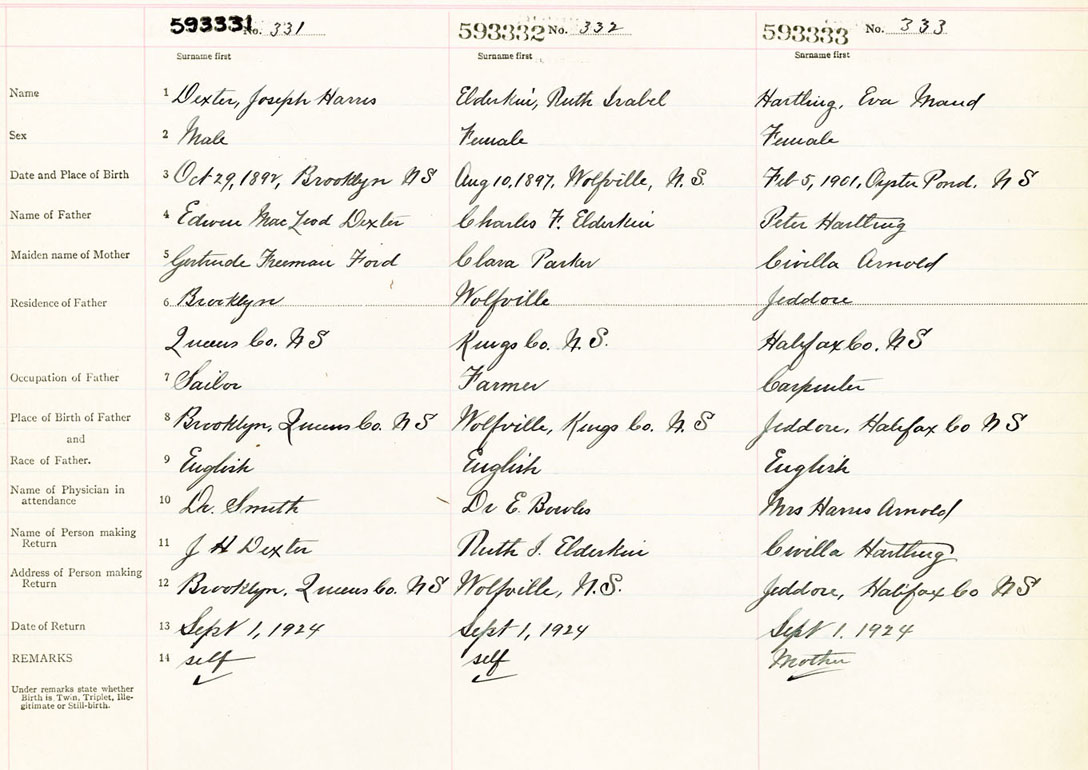 593331 No. 331 593332 No. 332 593333 No. 333
Surname first Surname first Surname first
Name 1 Dexter, Joseph Harris Elderkin, Ruth Isabel Hartling, Eva Maud
Sex 2 Male Female Female
Date and Place of Birth 3 Oct 29, 1892, Brooklyn NS Aug 10, 1897, Wolfville, N.S. Feb 5, 1901, Oyster Pond. NS
Name of Father 4 Edwin MacLeod Dexter Charles F. Elderkin Peter Hartling
Maiden name of Mother 5 Gertrude Freeman Ford Clara Parker Civilla Arnold
Residence of Father 6 Brooklyn Wolfville Jeddore
Queens Co. NS Kings Co. N.S. Halifax Co. NS
Occupation of Father 7 Sailor Farmer Carpenter
Place of Birth of Father 8 Brooklyn, Queens Co. NS Wolfville, Kings Co. N.S Jeddore, Halifax Co NS
and
Race of Father. 9 English English English
Name of Physician in
attendance 10 Dr. Smith Dr E. Bowles Mrs Harris Arnold
Name of Person making
Return 11 J H Dexter Ruth I. Elderkin Civilla Hartling
Address of Person making
Return 12 Brooklyn, Queens Co. NS Wolfville, N.S. Jeddore, Halifax Co NS
Date of Return 13 Sept 1, 1924 Sept 1, 1924 Sept 1. 1924
REMARKS 14 self self Mother
Under remarks state whether
Birth is Twin, Triplet, Ille-
gitimate or Still-birth.